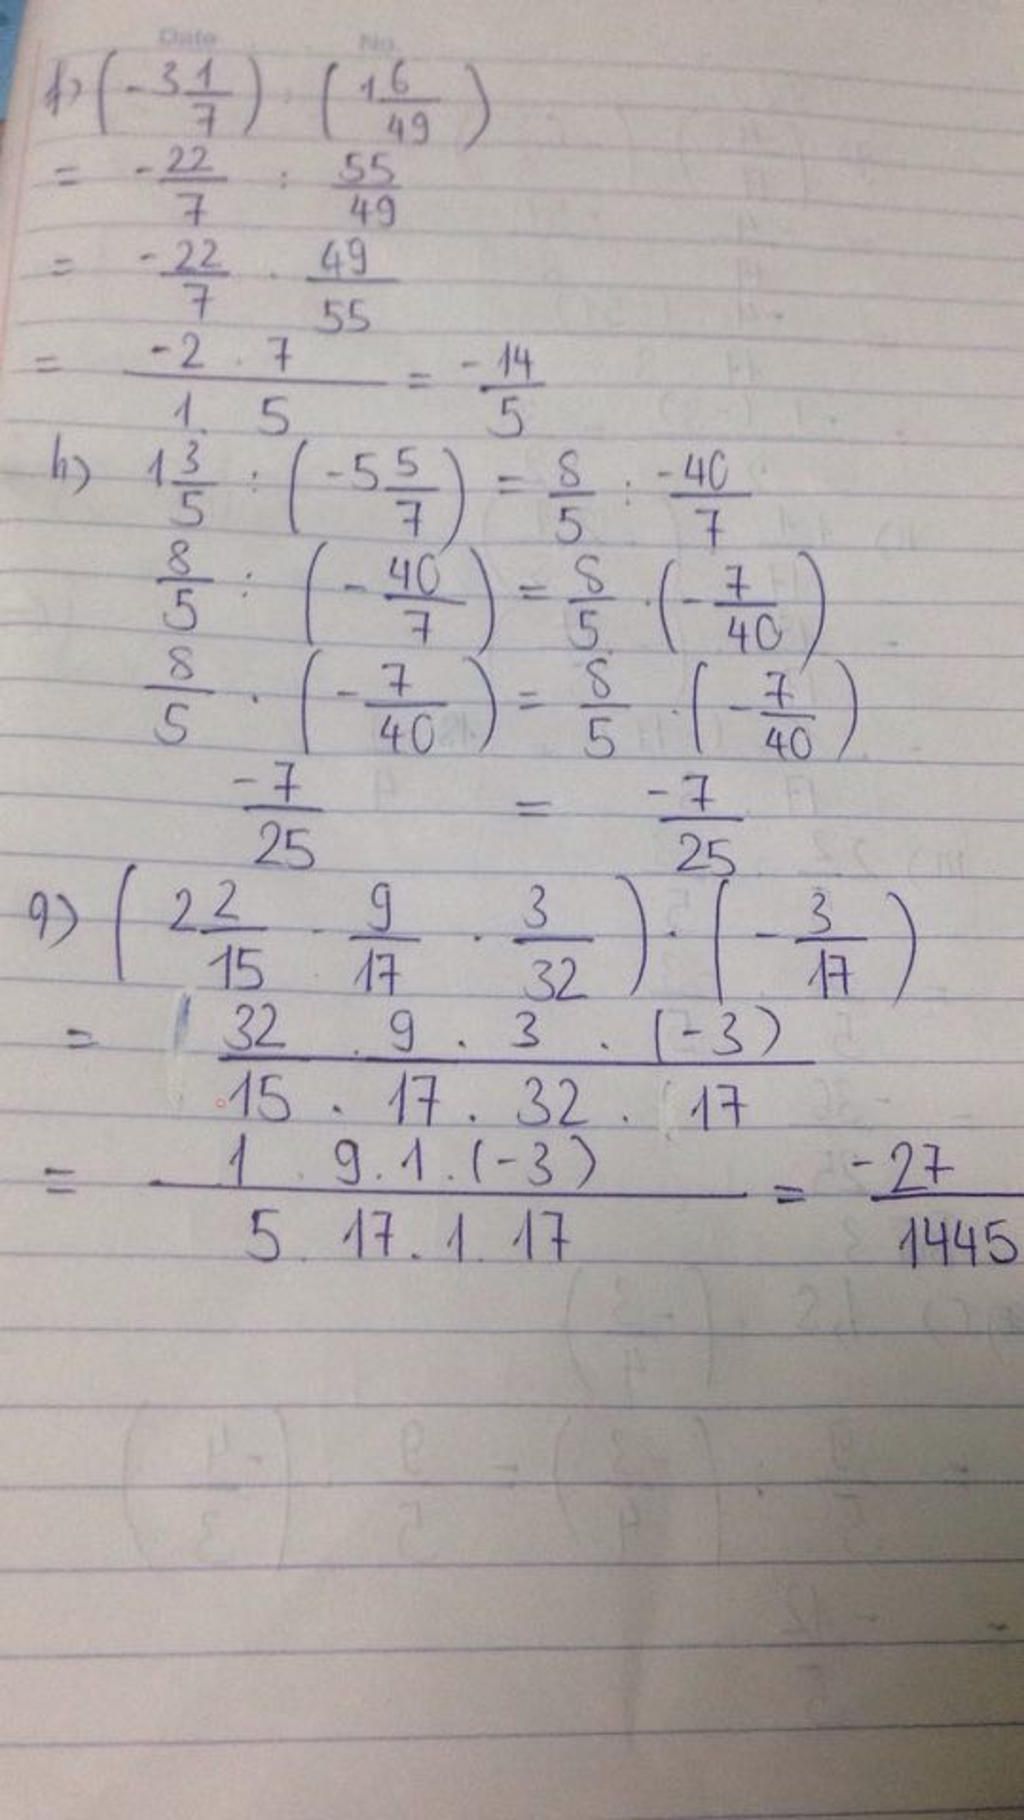 Date No.
f) (-3 1/7) : (1 6/49)
= -22/7 : 55/49
= -22/7 . 49/55
= -2 . 7/1 . 5 = -14/5
h) 1 3/5 : (-5 5/7) = 8/5 : -40/7
8/5 : (-40/7) = 8/5 . (-7/40)
8/5 . (-7/40) = 8/5 . (-7/40)
-7/25 = -7/25
g) (2 2/15 . 9/17 . 3/32) . (-3/17)
= 32 . 9 . 3 . (-3)/15 . 17 . 32 . 17
= 1 . 9 . 1 . (-3)/5 . 17 . 1 . 17 = -27/1445